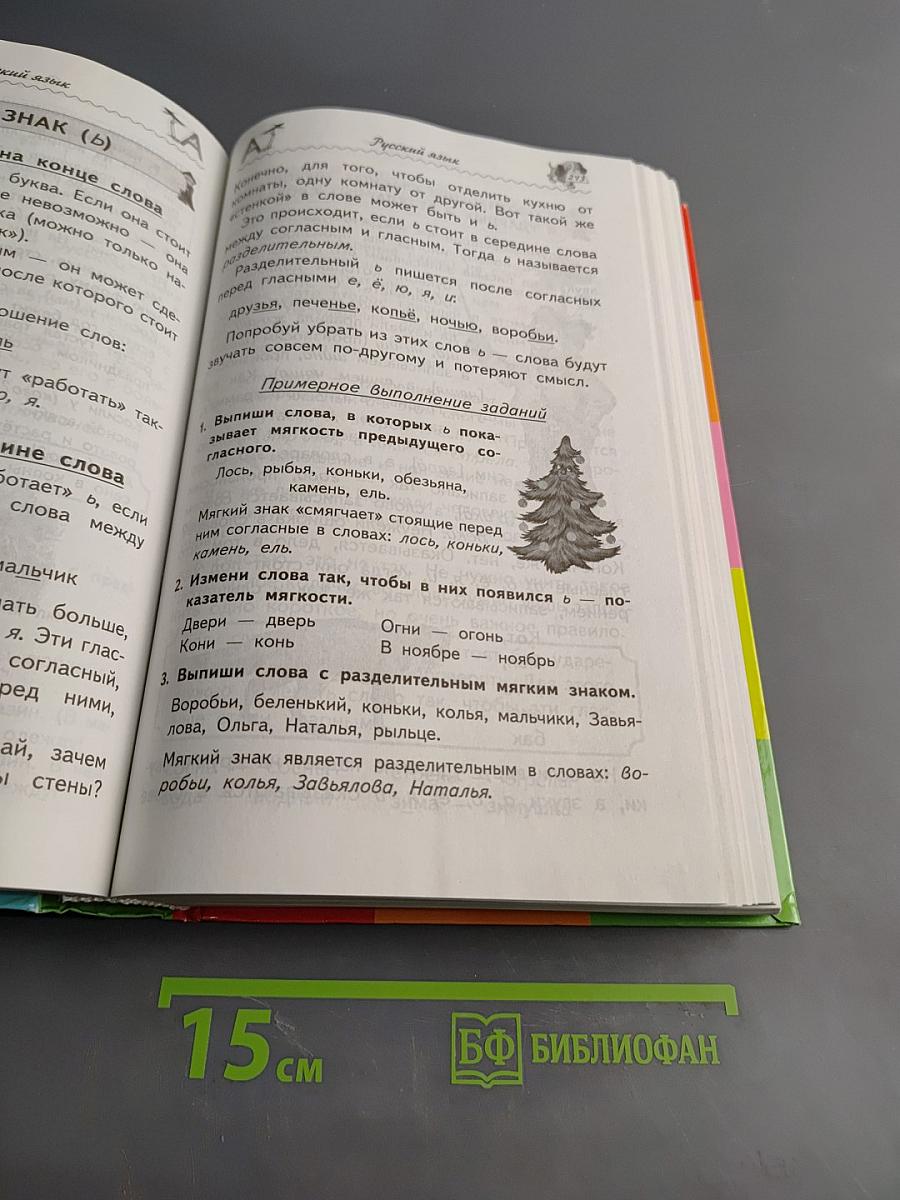 ский язык
ЗНАК (Ь)
на конце слова
буква. Если она стоит
е невозможно — она
ка (можно только на-
к»).
ым — он может сде-
после которого стоит
ошение слов:
ль
ут «работать» так-
ю, я.
ине слова
ботает» ь, если
слова между
мальчик
ать больше,
я. Эти глас-
согласный,
ред ними,
ай, зачем
ы стены?
Русский язык
Конечно, для того, чтобы отделить кухню от
комнаты, одну комнату от другой. Вот такой же
«стенкой» в слове может быть и ь.
Это происходит, если ь стоит в середине слова
между согласным и гласным. Тогда ь называется
разделительным.
Разделительный ь пишется после согласных
перед гласными е, ё, ю, я, и:
друзья, печенье, копьё, ночью, воробьи.
Попробуй убрать из этих слов ь — слова будут
звучать совсем по-другому и потеряют смысл.
Примерное выполнение заданий
1. Выпиши слова, в которых ь пока-
зывает мягкость предыдущего со-
гласного.
Лось, рыбья, коньки, обезьяна,
камень, ель.
Мягкий знак «смягчает» стоящие перед
ним согласные в словах: лось, коньки,
камень, ель.
2. Измени слова так, чтобы в них появился ь — по-
казатель мягкости.
Двери — дверь Огни — огонь
Кони — конь В ноябре — ноябрь
3. Выпиши слова с разделительным мягким знаком.
Воробьи, беленький, коньки, колья, мальчики, Завья-
лова, Ольга, Наталья, рыльце.
Мягкий знак является разделительным в словах: во-
робьи, колья, Завьялова, Наталья.
15 см
БФ БИБЛИОФАН